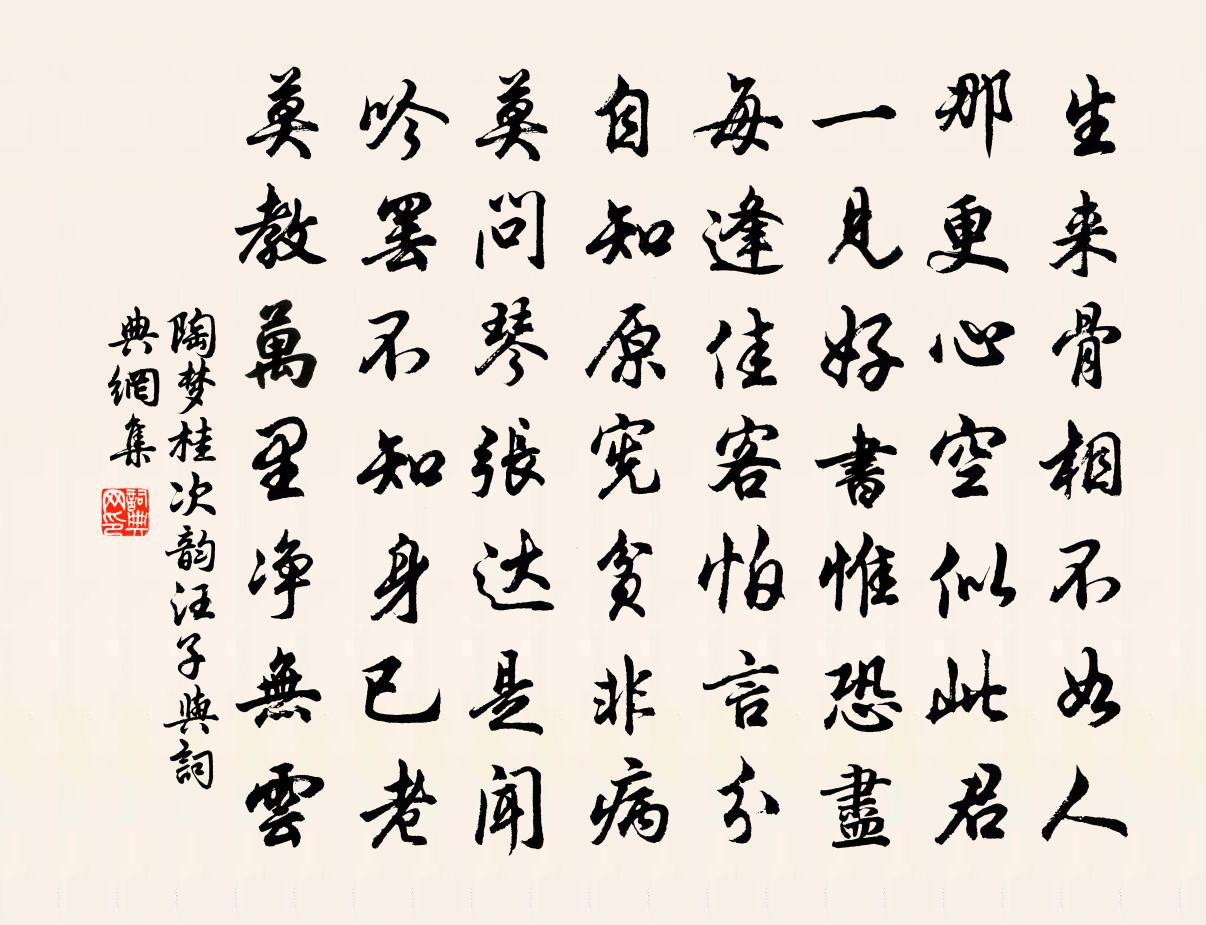 生来骨相不如人
那更心空似此君
一見好書惟恐盡
每逢佳客怕言分
自知原宪贫非病
莫问琴張达是闻
吟罢不知身已老
莫教萬里净無雲
陶梦桂次韵汪子與詞
典網集
詞典网印